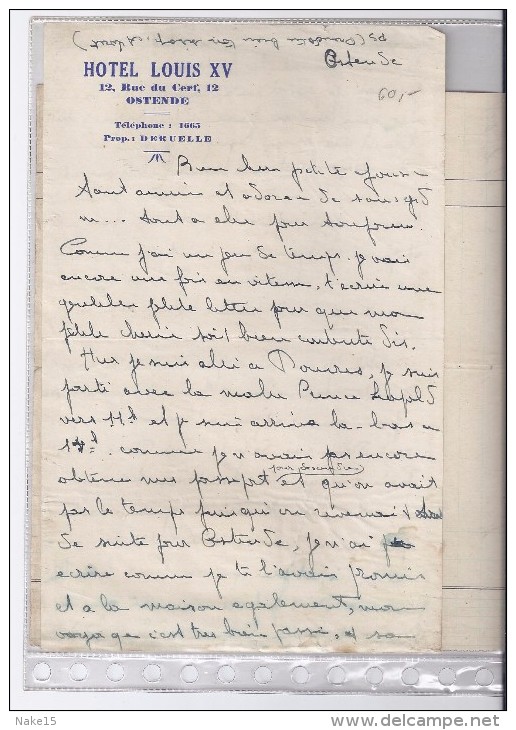 Ostende
60,-
HOTEL LOUIS XV
12, Rue du Cerf, 12
OSTENDE
Téléphone : 1665
Prop.: DERUELLE
Bien chère petite
tant aimée et adorée de son gd
m... tout a elle pour toujours.
Comme j'ai un peu de temps je vais
encore une fois en vitesse, t'écrire une
gentille petite lettre pour que mon
petite cherie soit bien contente dis.
Hier je suis allé a Douvres, je suis
parti avec la malle Prince Léopold
vers 11h et je suis arrivé la-bas a
comme je n'avais pas encore
pour descendre
obtenu mes passeport et qu'on avait
pas le temps puisqu'on revenait
de suite pour Ostende, je n'ai pu
ecrire comme je te l'avais promis
et a la maison egalement, mon
voyage c'est tres bien passé, et sa
Nake15